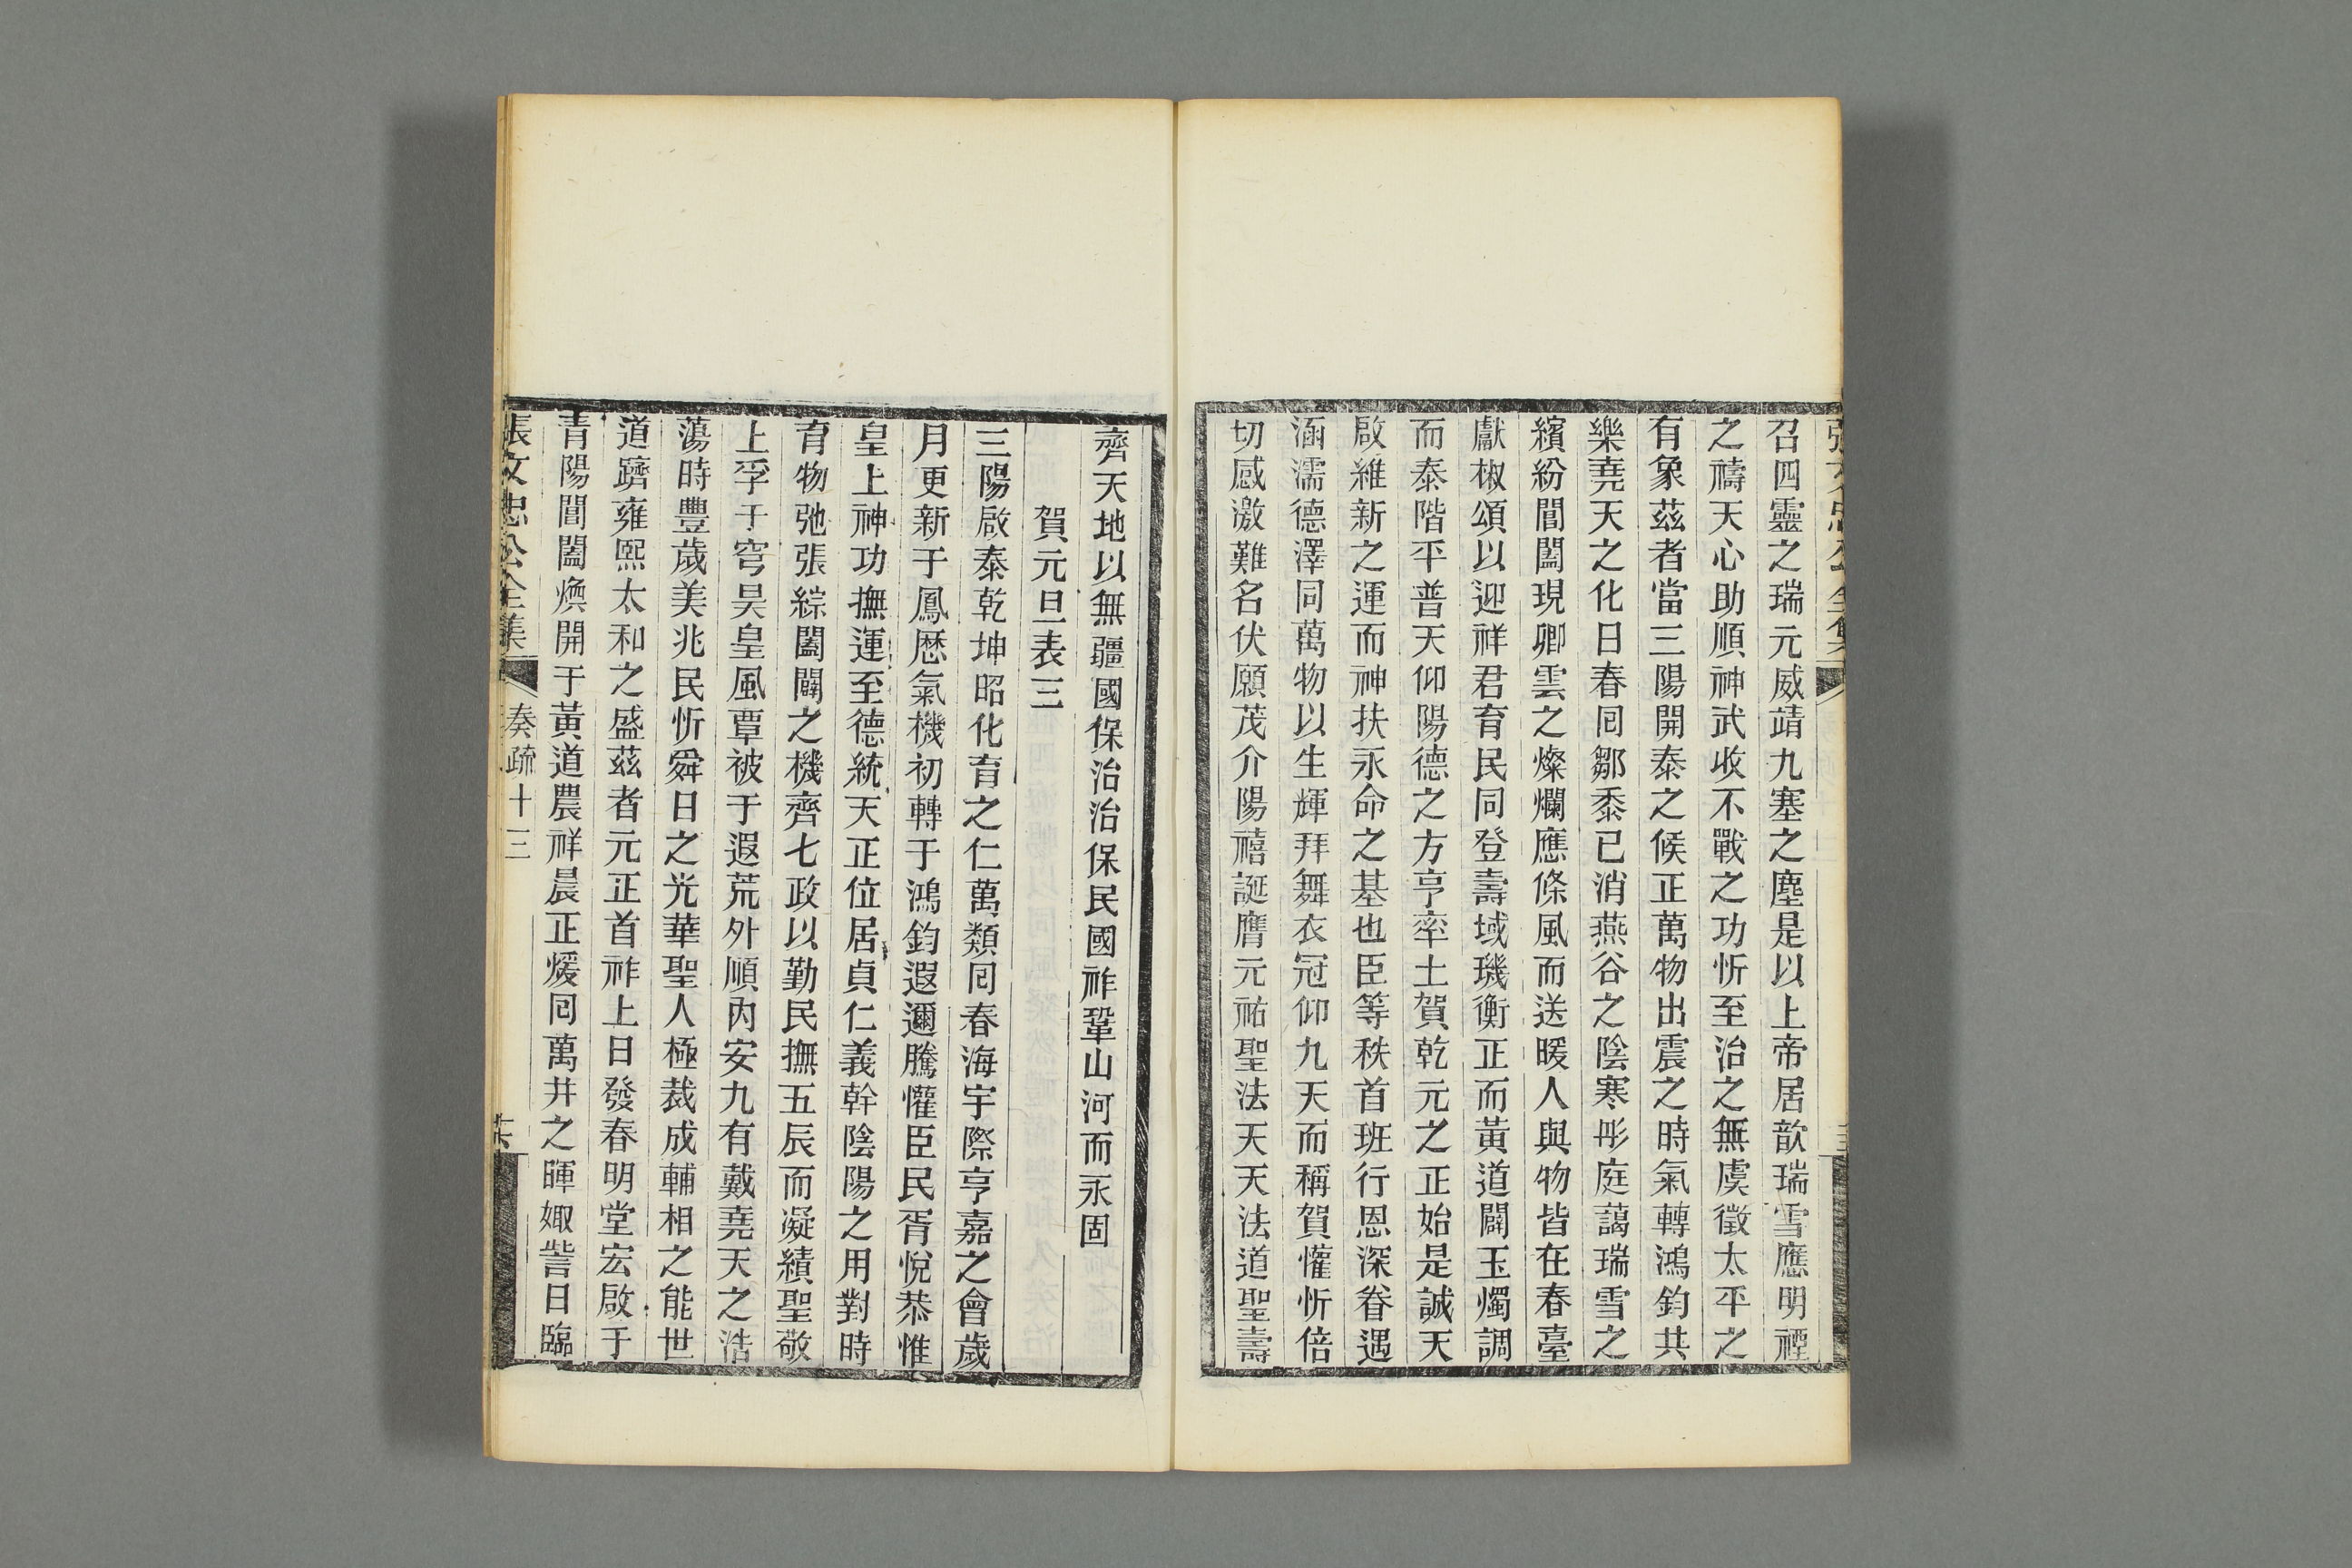 張文忠公全集
召四靈之瑞元威靖九塞之塵是以上帝居歆瑞雪應明禋
之禱天心助順神武收不戰之功忻至治之無虞徵太平之
有象茲者當三陽開泰之候正萬物出震之時氣轉鴻鈞共
樂堯天之化日春囘鄒黍已消燕谷之陰寒彤庭藹瑞雪之
繽紛閶闔現卿雲之燦爛應條風而送暖人與物皆在春臺
獻椒頌以迎祥君育民同登壽域璣衡正而黃道闢玉燭調
而泰階平普天仰陽德之方亨率土賀乾元之正始是誠天
啟維新之運而神扶永命之基也臣等秩首班行恩深眷遇
涵濡德澤同萬物以生輝拜舞衣冠仰九天而稱賀懽忻倍
切感激難名伏願茂介陽禧誕膺元祐聖法天天法道聖壽
齊天地以無疆國保治治保民國祚鞏山河而永固
賀元旦表三
三陽啟泰乾坤昭化育之仁萬類囘春海宇際亨嘉之會歲
月更新于鳳厯氣機初轉于鴻鈞遐邇騰懽臣民胥悅恭惟
皇上神功撫運至德統天正位居貞仁義幹陰陽之用對時
育物弛張綜闔闢之機齊七政以勤民撫五辰而凝績聖敬
上孚于穹昊皇風覃被于遐荒外順內安九有戴堯天之浩
蕩時豐歲美兆民忻舜日之光華聖人極裁成輔相之能世
道躋雍熙太和之盛茲者元正首祚上日發春明堂宏啟于
青陽閶闔煥開于黃道農祥晨正煖囘萬井之暉娵訾日臨
張文忠公全集
奏疏十三
共